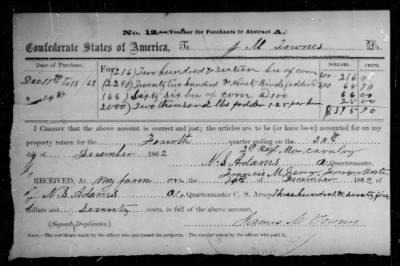 No. 12.—Voucher for Purchases to Abstract A.
Confederate States of America, To J M Townes Dr.
Date of Purchase DOLLARS CENTS
Decr 11th to 18th /62 For (216) Two hundred & sixteen bu of corn 216 00
(66) Sixty six bu of corn 66 00
2000) Two thousand lbs fodder 1.25 per h 25 00
I CERTIFY that the above account is correct and just; the articles to be (or have been) accounted for on my
property return for the Fourth quarter ending on the
of December 1862
N. B. Adams Quartermaster.
RECEIVED, At my farm on the 19th of December 1862
of N. B. Adams Quartermaster C. S. Army, Three hundred & seventy five
dollars and seventy cents, in full of the above account.
(Signed Duplicates.) James M. Townes
NOTE.—The certificate made by the officer who purchased the property. The cavalry return by the officer who paid it.